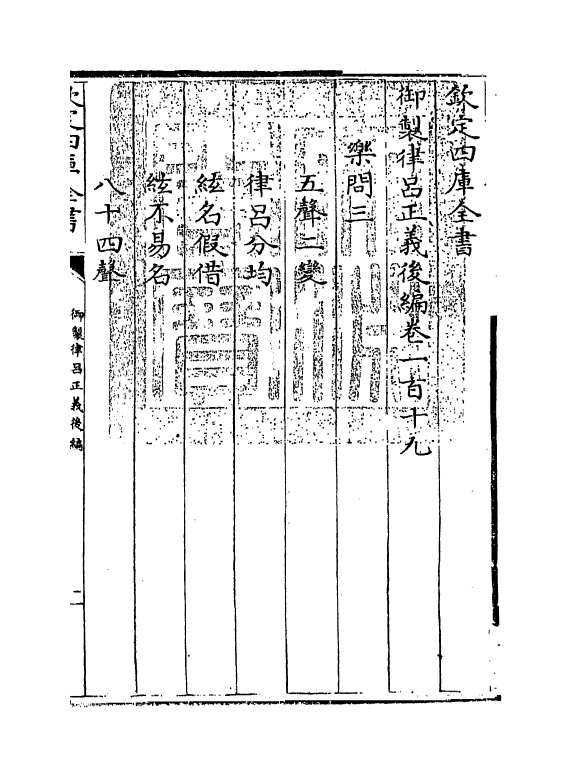 欽定四庫全書
御製律呂正義後編卷一百十九
樂問三
五聲二變
律呂分均
絃名假借
絃不易名
八十四聲
欽定四庫全書
御製律呂正義後編